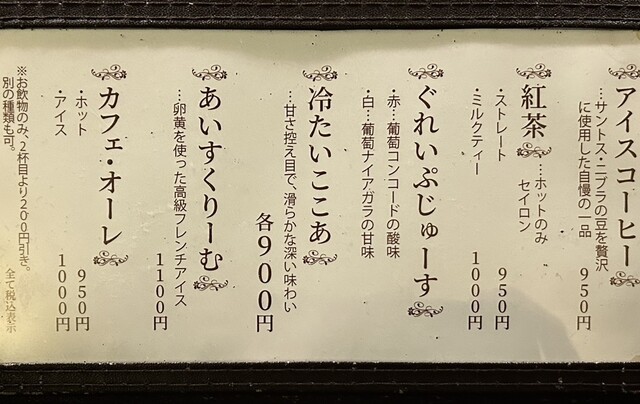 アイスコーヒー
…サントス・ニブラの豆を贅沢
に使用した自慢の一品
950円
紅茶
…ホットのみ
セイロン
・ストレート
950円
・ミルクティー
1000円
ぐれいぷじゅーす
・赤…葡萄コンコードの酸味
・白…葡萄ナイアガラの甘味
冷たいここあ
…甘さ控え目で、滑らかな深い味わい
各900円
あいすくりーむ
…卵黄を使った高級フレンチアイス
1100円
カフェ・オーレ
・ホット
950円
・アイス
1000円
※お飲物のみ、2杯目より200円引き。
別の種類も可。
全て税込表示